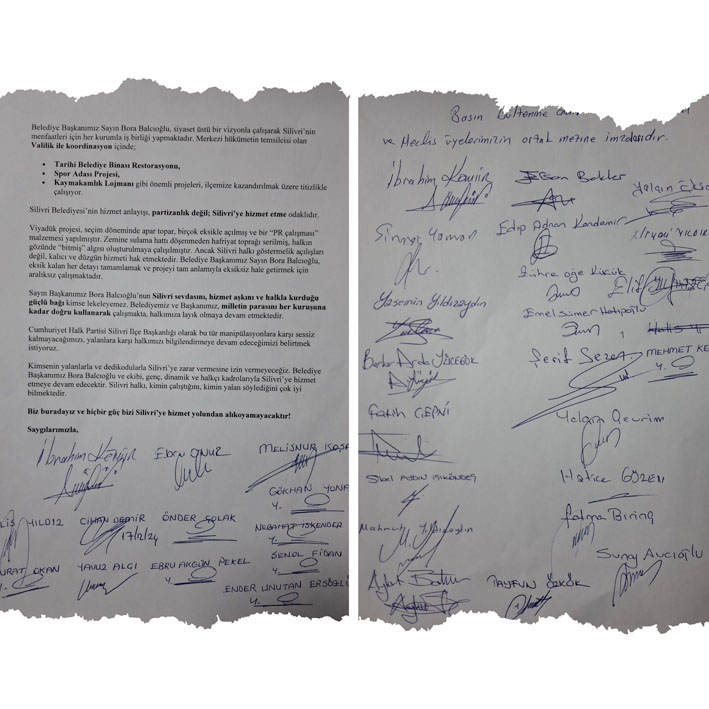 Belediye Başkanımız Sayın Bora Balcıoğlu, siyaset üstü bir vizyonla çalışarak Silivri'nin
menfaatleri için her kurumla iş birliği yapmaktadır. Merkezi hükümetin temsilcisi olan
Valilik ile koordinasyon içinde;
• Tarihi Belediye Binası Restorasyonu,
• Spor Adası Projesi,
• Kaymakamlık Lojmanı gibi önemli projeleri, ilçemize kazandırılmak üzere titizlikle
çalışıyor.
Silivri Belediyesi'nin hizmet anlayışı, partizanlık değil; Silivri'ye hizmet etme odaklıdır.
Viyadük projesi, seçim döneminde apar topar, birçok eksikle açılmış ve bir "PR çalışması"
malzemesi yapılmıştır. Zemine sulama hattı döşenmeden hafriyat toprağı serilmiş, halkın
gözünde "bitmiş" algısı oluşturulmaya çalışılmıştır. Ancak Silivri halkı göstermelik açılışları
değil, kalıcı ve düzgün hizmeti hak etmektedir. Belediye Başkanımız Sayın Bora Balcıoğlu,
eksik kalan her detayı tamamlamak ve projeyi tam anlamıyla eksiksiz hale getirmek için
aralıksız çalışmaktadır.
Sayın Başkanımız Bora Balcıoğlu'nun Silivri sevdasını, hizmet aşkını ve halkla kurduğu
güçlü bağı kimse lekeleyemez. Belediyemiz ve Başkanımız, milletin parasını her kuruşuna
kadar doğru kullanarak çalışmakta, halkımıza layık olmaya devam etmektedir.
Cumhuriyet Halk Partisi Silivri İlçe Başkanlığı olarak bu tür manipülasyonlara karşı sessiz
kalmayacağımızı, yalanlara karşı halkımızı bilgilendirmeye devam edeceğimizi belirtmek
istiyoruz.
Kimsenin yalanlarla ve dedikodularla Silivri'ye zarar vermesine izin vermeyeceğiz. Belediye
Başkanımız Bora Balcıoğlu ve ekibi, genç, dinamik ve halkçı kadrolarıyla Silivri'ye hizmet
etmeye devam edecektir. Silivri halkı, kimin çalıştığını, kimin yalan söylediğini çok iyi
bilmektedir.
Biz buradayız ve hiçbir güç bizi Silivri'ye hizmet yolundan alıkoyamayacaktır!
Saygılarımızla,
İbrahim Kömür Ebru ONUR MELİSNUR
GÖKHAN
YILDIZ CİHAN DEMİR ÖNDER ÇOLAK NEBAHAT İSKENDER
17/12/24
OKAN YAVUZ ALGI EBRU AKGÜN PEKEL ŞENOL FİDAN
ENDER UNUTAN
Basın bültenine
ve Meclis üyelerimizin ortak metine imzalarıdır.
İbrahim Kömür Yalçın
Yaman Edip Adnan Kandemir
Kücük Elif
Yasemin Yıldızaydın Emel Sümer Hatipoğlu
Berker Arda YÜCEGÖK Şerif Sezer MEHMET
Fatih ÇEPNİ Yalçın Devrim
AYDIN Hatice GÖZEN
Mahmut Fatma Birinç
Suay Avcıoğlu
TAYFUN ÖZKÖK